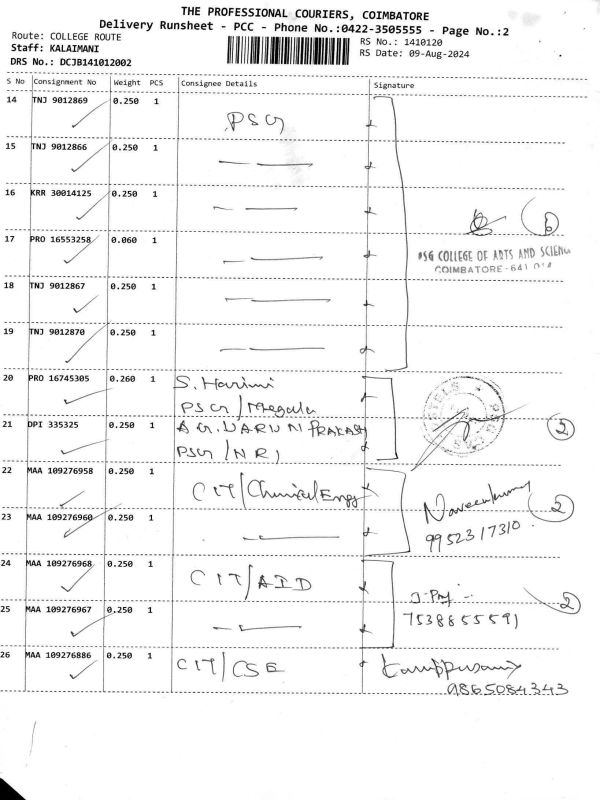 THE PROFESSIONAL COURIERS, COIMBATORE
Delivery Runsheet - PCC - Phone No.:0422-3505555 - Page No.:2
Route: COLLEGE ROUTE
Staff: KALAIMANI
DRS No.: DCJB141012002
RS No.: 1410120
RS Date: 09-Aug-2024
S No Consignment No Weight PCS Consignee Details Signature
14 TNJ 9012869 0.250 1 PSG
15 TNJ 9012866 0.250 1
16 KRR 30014125 0.250 1
17 PRO 16553258 0.060 1
6
PSG COLLEGE OF ARTS AND SCIENCE
COIMBATORE - 641 014
18 TNJ 9012867 0.250 1
19 TNJ 9012870 0.250 1
20 PRO 16745305 0.260 1 S. Harini
PSG/Megala
21 DPI 335325 0.250 1 A G. VARUN PRAKASH
PSG/NRI
2
22 MAA 109276958 0.250 1 CIT/Chemical Engg
Naveenkumar
9952317310
2
23 MAA 109276960 0.250 1
24 MAA 109276968 0.250 1 CIT/AID
7538855591
2
25 MAA 109276967 0.250 1
26 MAA 109276886 0.250 1 CIT/CSE
Karuppusamy
9865084343